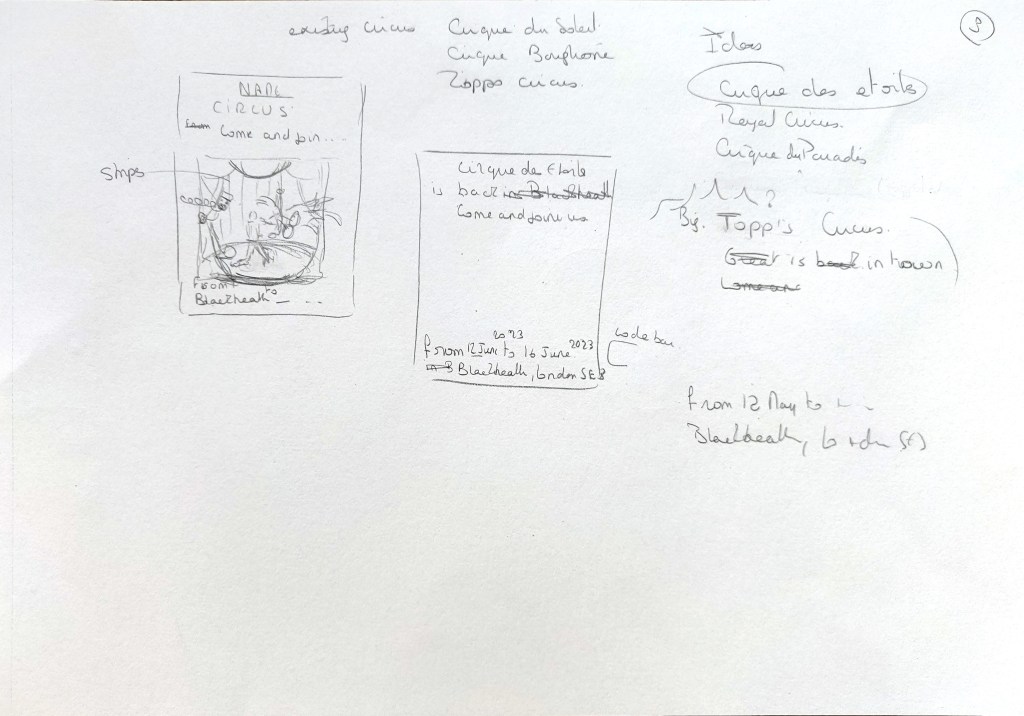 existing circus
Cirque du Soleil
Cirque
Zippo circus.
Ideas
Cirque des etoiles
Royal Circus.
Cirque du Paradis
?
Big. Topp's Circus.
Great is back in town
9
NAME
CIRCUS
from Come and join ...
Strips
from
Blackheath to _ ...
Cirque de Etoile
is back in Blackheath
Come and joine us
2023
from 12 June to 16 June 2023
Blackheath, London SE3
code bar
from 12 May to - -
Blackheath, London SE3